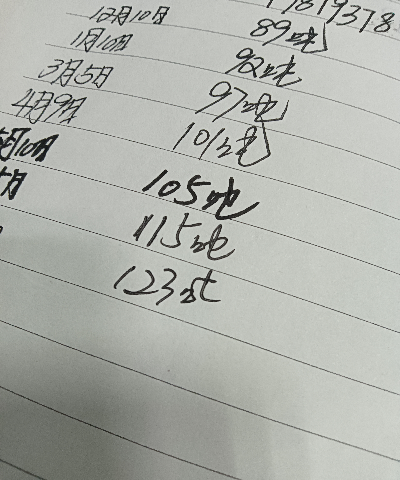 12月10日 89吨
1月10日 92吨
3月5日 97吨
4月9日 101吨
月10日 105吨
月 115吨
123吨